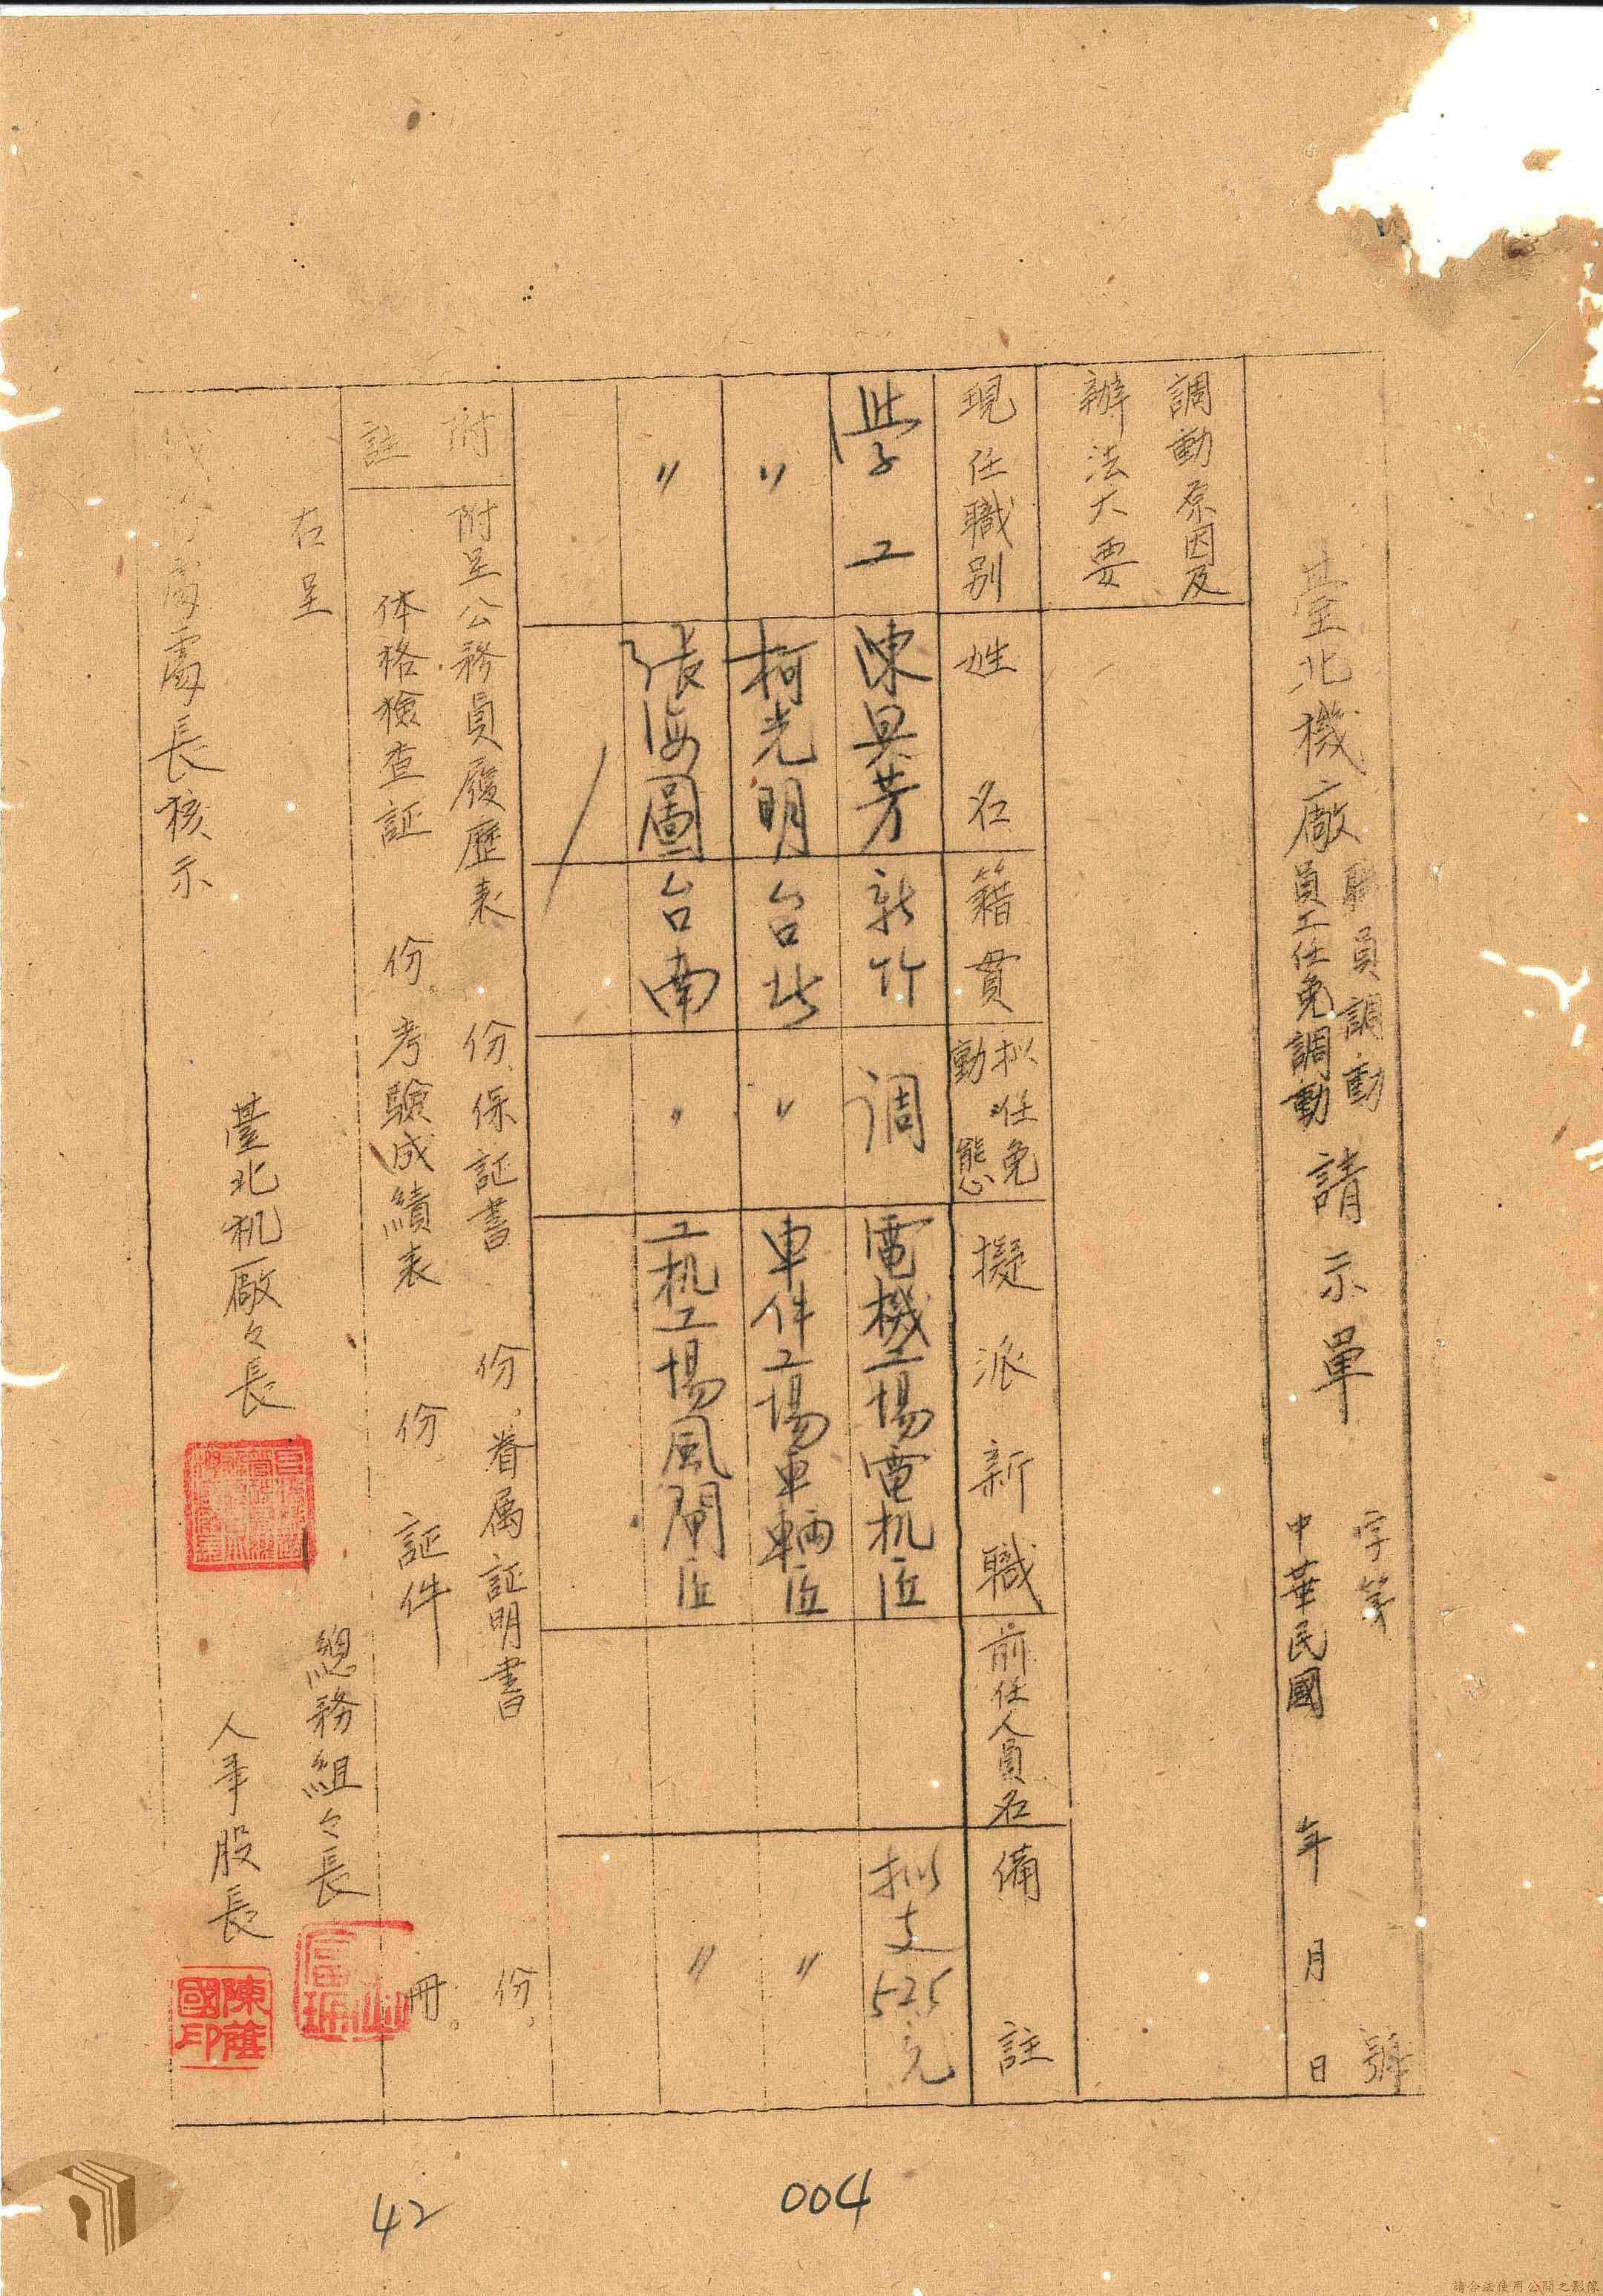 臺北機廠
職員調動
員工任免調動
請示單
字第 號
中華民國 年 月 日
調動原因及
辦法大要
現任職別 姓名 籍貫 拟任免動態 擬派新職 前任人員名 備註
學工 陳昊芳 新竹 调 電機工場電机匠 拟支525元
〃 柯光明 台北 〃 車件工場車輌匠 〃
〃 張海圖 台南 〃 工机工場風閘匠 〃
附註
附呈公務員履歷表 份、保証書 份、眷属証明書 份、
体格檢查証 份、考驗成績表 份、証件 冊。
右呈
處長核示
臺北机廠々長
總務組々長
人事股長
陳
國印
42
004
請合法使用公開之影像